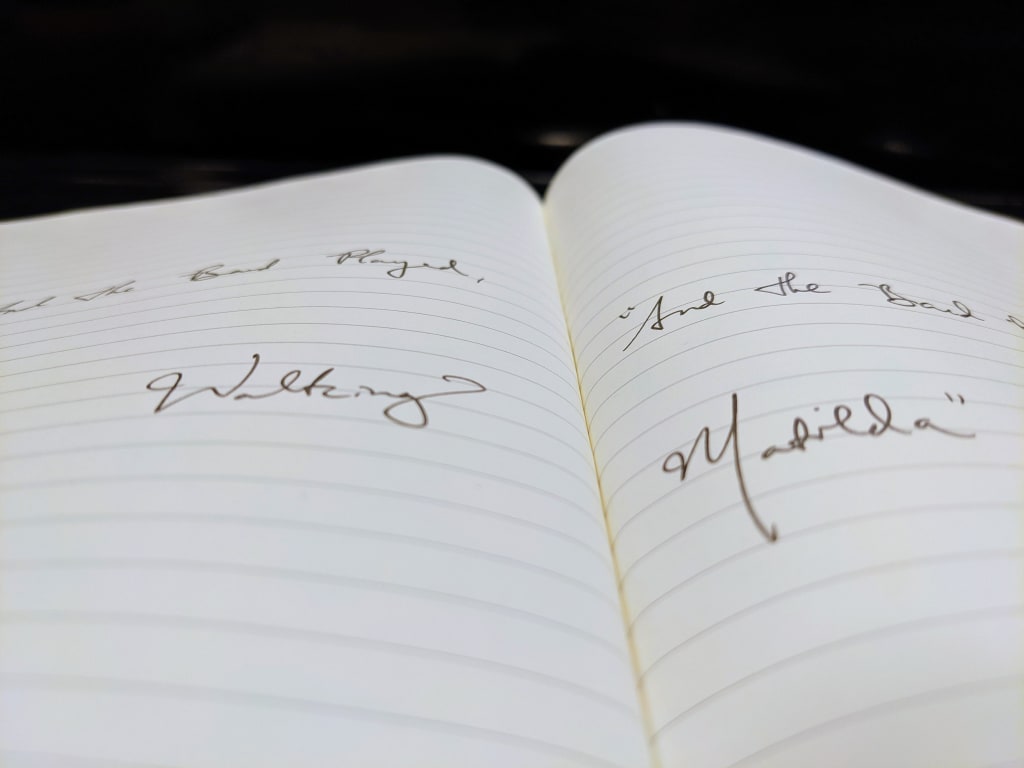 And the Band Played,
Waltzing
"And the Band
Matilda"